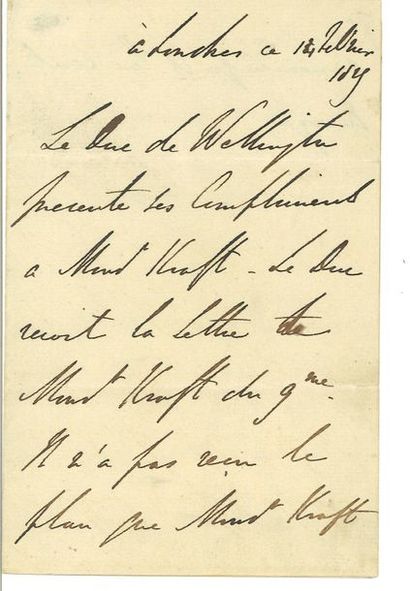 à Londres ce 12 Février
18
Le Duc de Wellington
presente ses Compliments
a Monsr Kraft - Le Duc
recoit la lettre de
Monsr Kraft du 9me.
Il n'a pas recu le
plan que Monsr Kraft